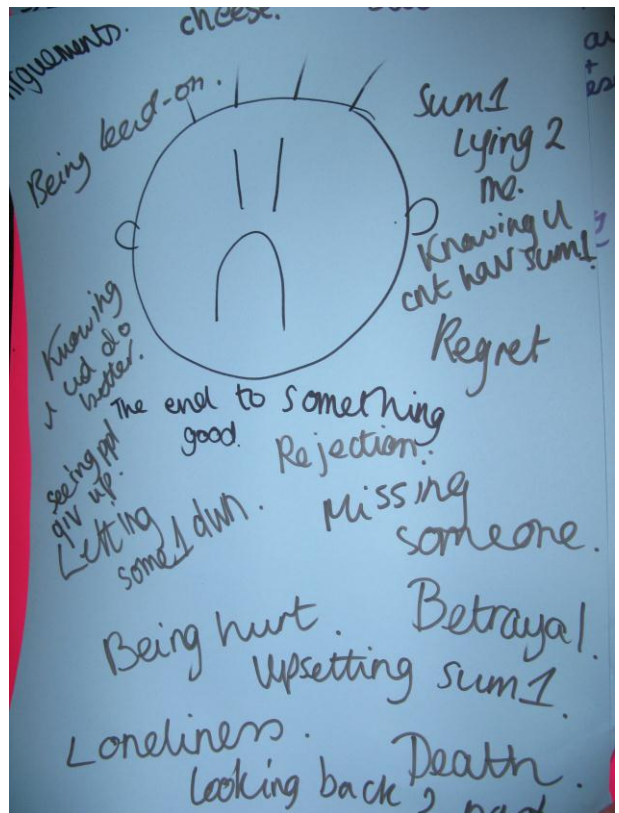 arguements.
cheese.
Being lead-on.
Sum1
Lying 2
me.
Knowing u
cnt hav sum1.
Regret
Knowing
u cud do
better.
The end to something
good.
Rejection.
seeing ppl
giv up.
Letting
some1 dwn.
Missing
someone.
Being hurt.
Betrayal.
Upsetting sum1.
Loneliness.
Death.
Looking back 2